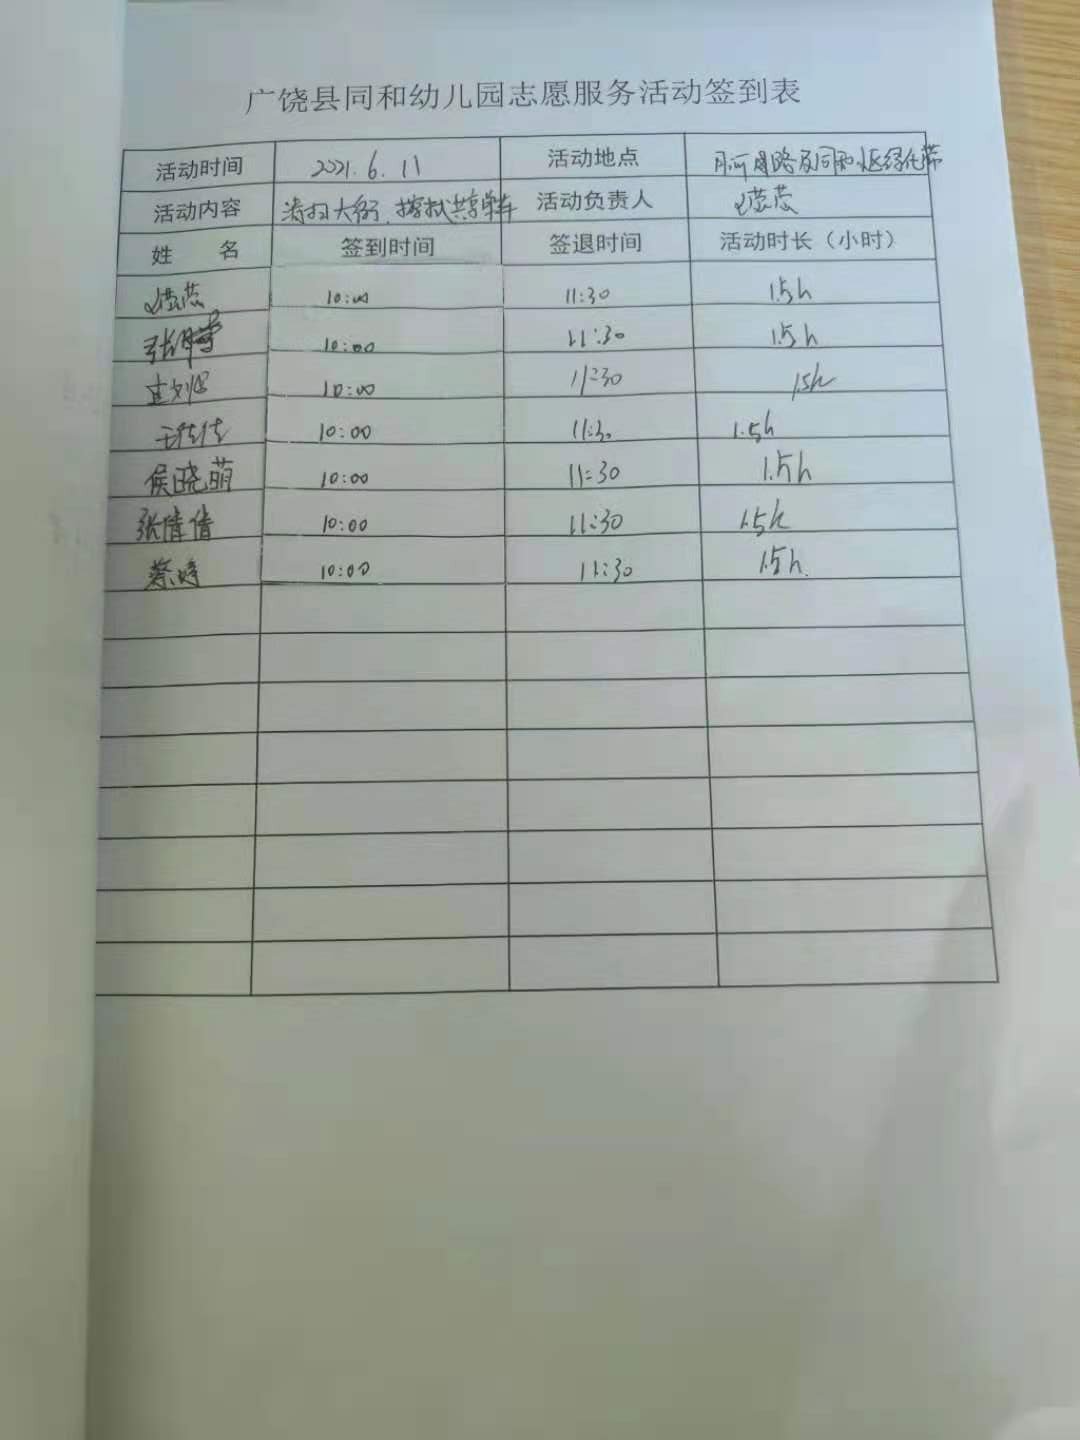 广饶县同和幼儿园志愿服务活动签到表
活动时间 2021.6.11 活动地点 月河路及同和小区绿化带
活动内容 清扫大街、擦拭共享单车 活动负责人
姓 名 签到时间 签退时间 活动时长（小时）
10:00 11:30 1.5h
10:00 11:30 1.5h
10:00 11:30 1.5h
王佳佳 10:00 11:30 1.5h
侯晓萌 10:00 11:30 1.5h
张倩倩 10:00 11:30 1.5h
蔡婷 10:00 11:30 1.5h.